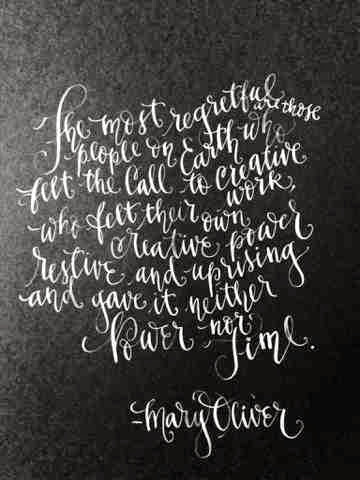 The most regretful are those
people on Earth who
felt the Call to creative
work,
who felt their own
creative power
restive and uprising
and gave it neither
Power nor
Time.
-Mary Oliver